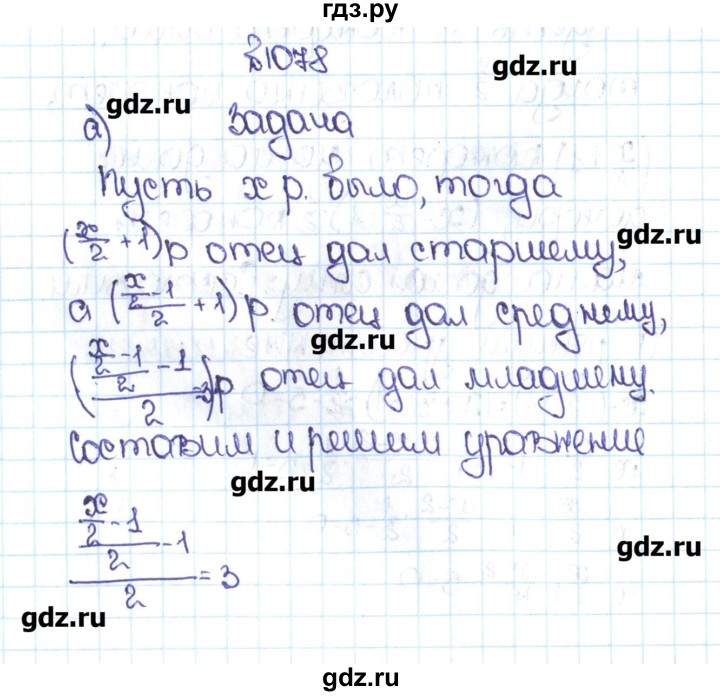 гдз.ру
№1078
gdz.ru
gdz.ru
а) Задача
Пусть x р. было, тогда
(x/2 + 1) р отец дал старшему,
gdz.ru
а ((x/2 - 1)/2 + 1) р. отец дал среднему,
gdz.ru
(((x/2 - 1)/2 - 1)/2) р отец дал младшему.
Составим и решим уравнение
gdz.ru
((x/2 - 1)/2 - 1)/2 = 3
gdz.ru
gdz.ru
gdz.ru